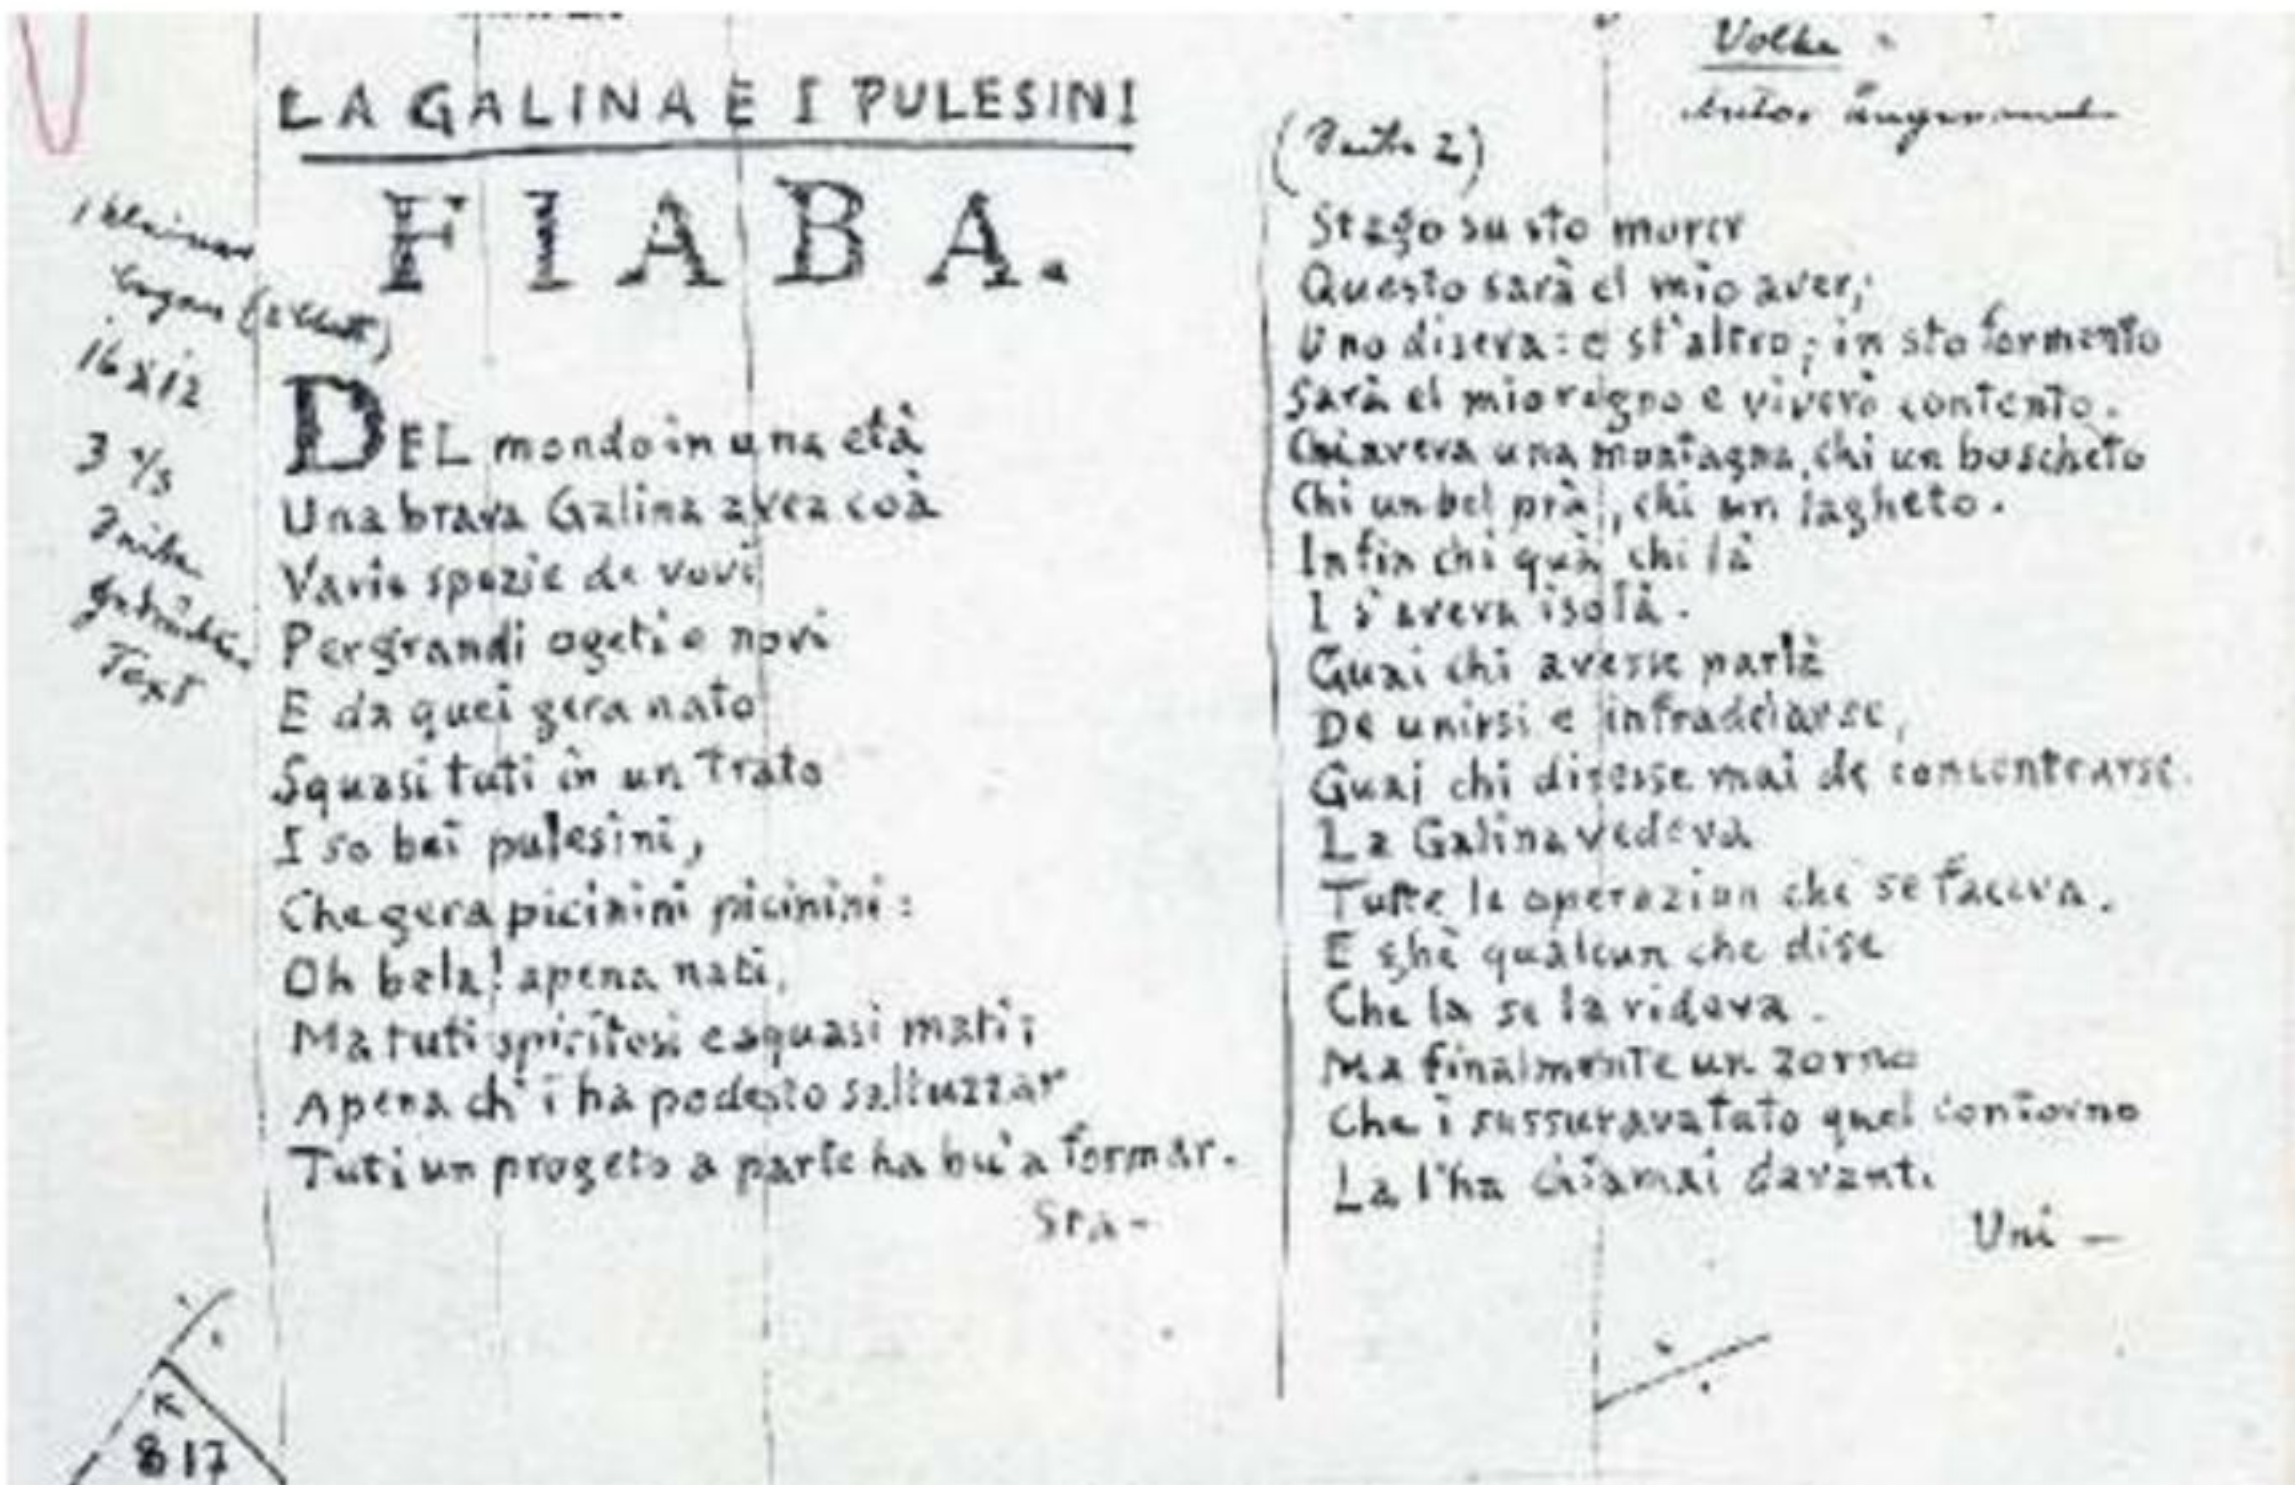 LA GALINA E I PULESINI
FIABA.
1 kleiner
Bogen (2 Blatt)
16 x 12
3 4/5
Seiten
gedruckter
Text
DEL mondo in una età
Una brava Galina avea coà
Varie spezie de vovi
Per grandi ogeti e novi
E da quei gera nato
Squasi tuti in un trato
I so bei pulesini,
Che gera picinini picinini:
Oh bela! apena nati,
Ma tuti spiritosi e squasi mati;
Apena ch' i ha podesto saltuzzar
Tuti un progeto a parte ha bu'a formar.
Sta-
Volke
Autor
(Seite 2)
Stago su sto murer
Questo sarà el mio aver;
Uno diseva: e st'altro; in sto formento
Sarà el mio regno e viverò contento.
Chi aveva una montagna, chi un boscheto
Chi un bel prà, chi un lagheto.
Infin chi quà chi là
I s'aveva isolà.
Guai chi avesse parlà
De unirsi e infradelarse,
Guai chi disesse mai de concentrarse.
La Galina vedeva
Tutte le operazion che se faceva.
E ghè qualcun che dise
Che la se la rideva.
Ma finalmente un zorno
Che i sussurava tuto quel contorno
La l'ha chiamai davanti
Uni-
817